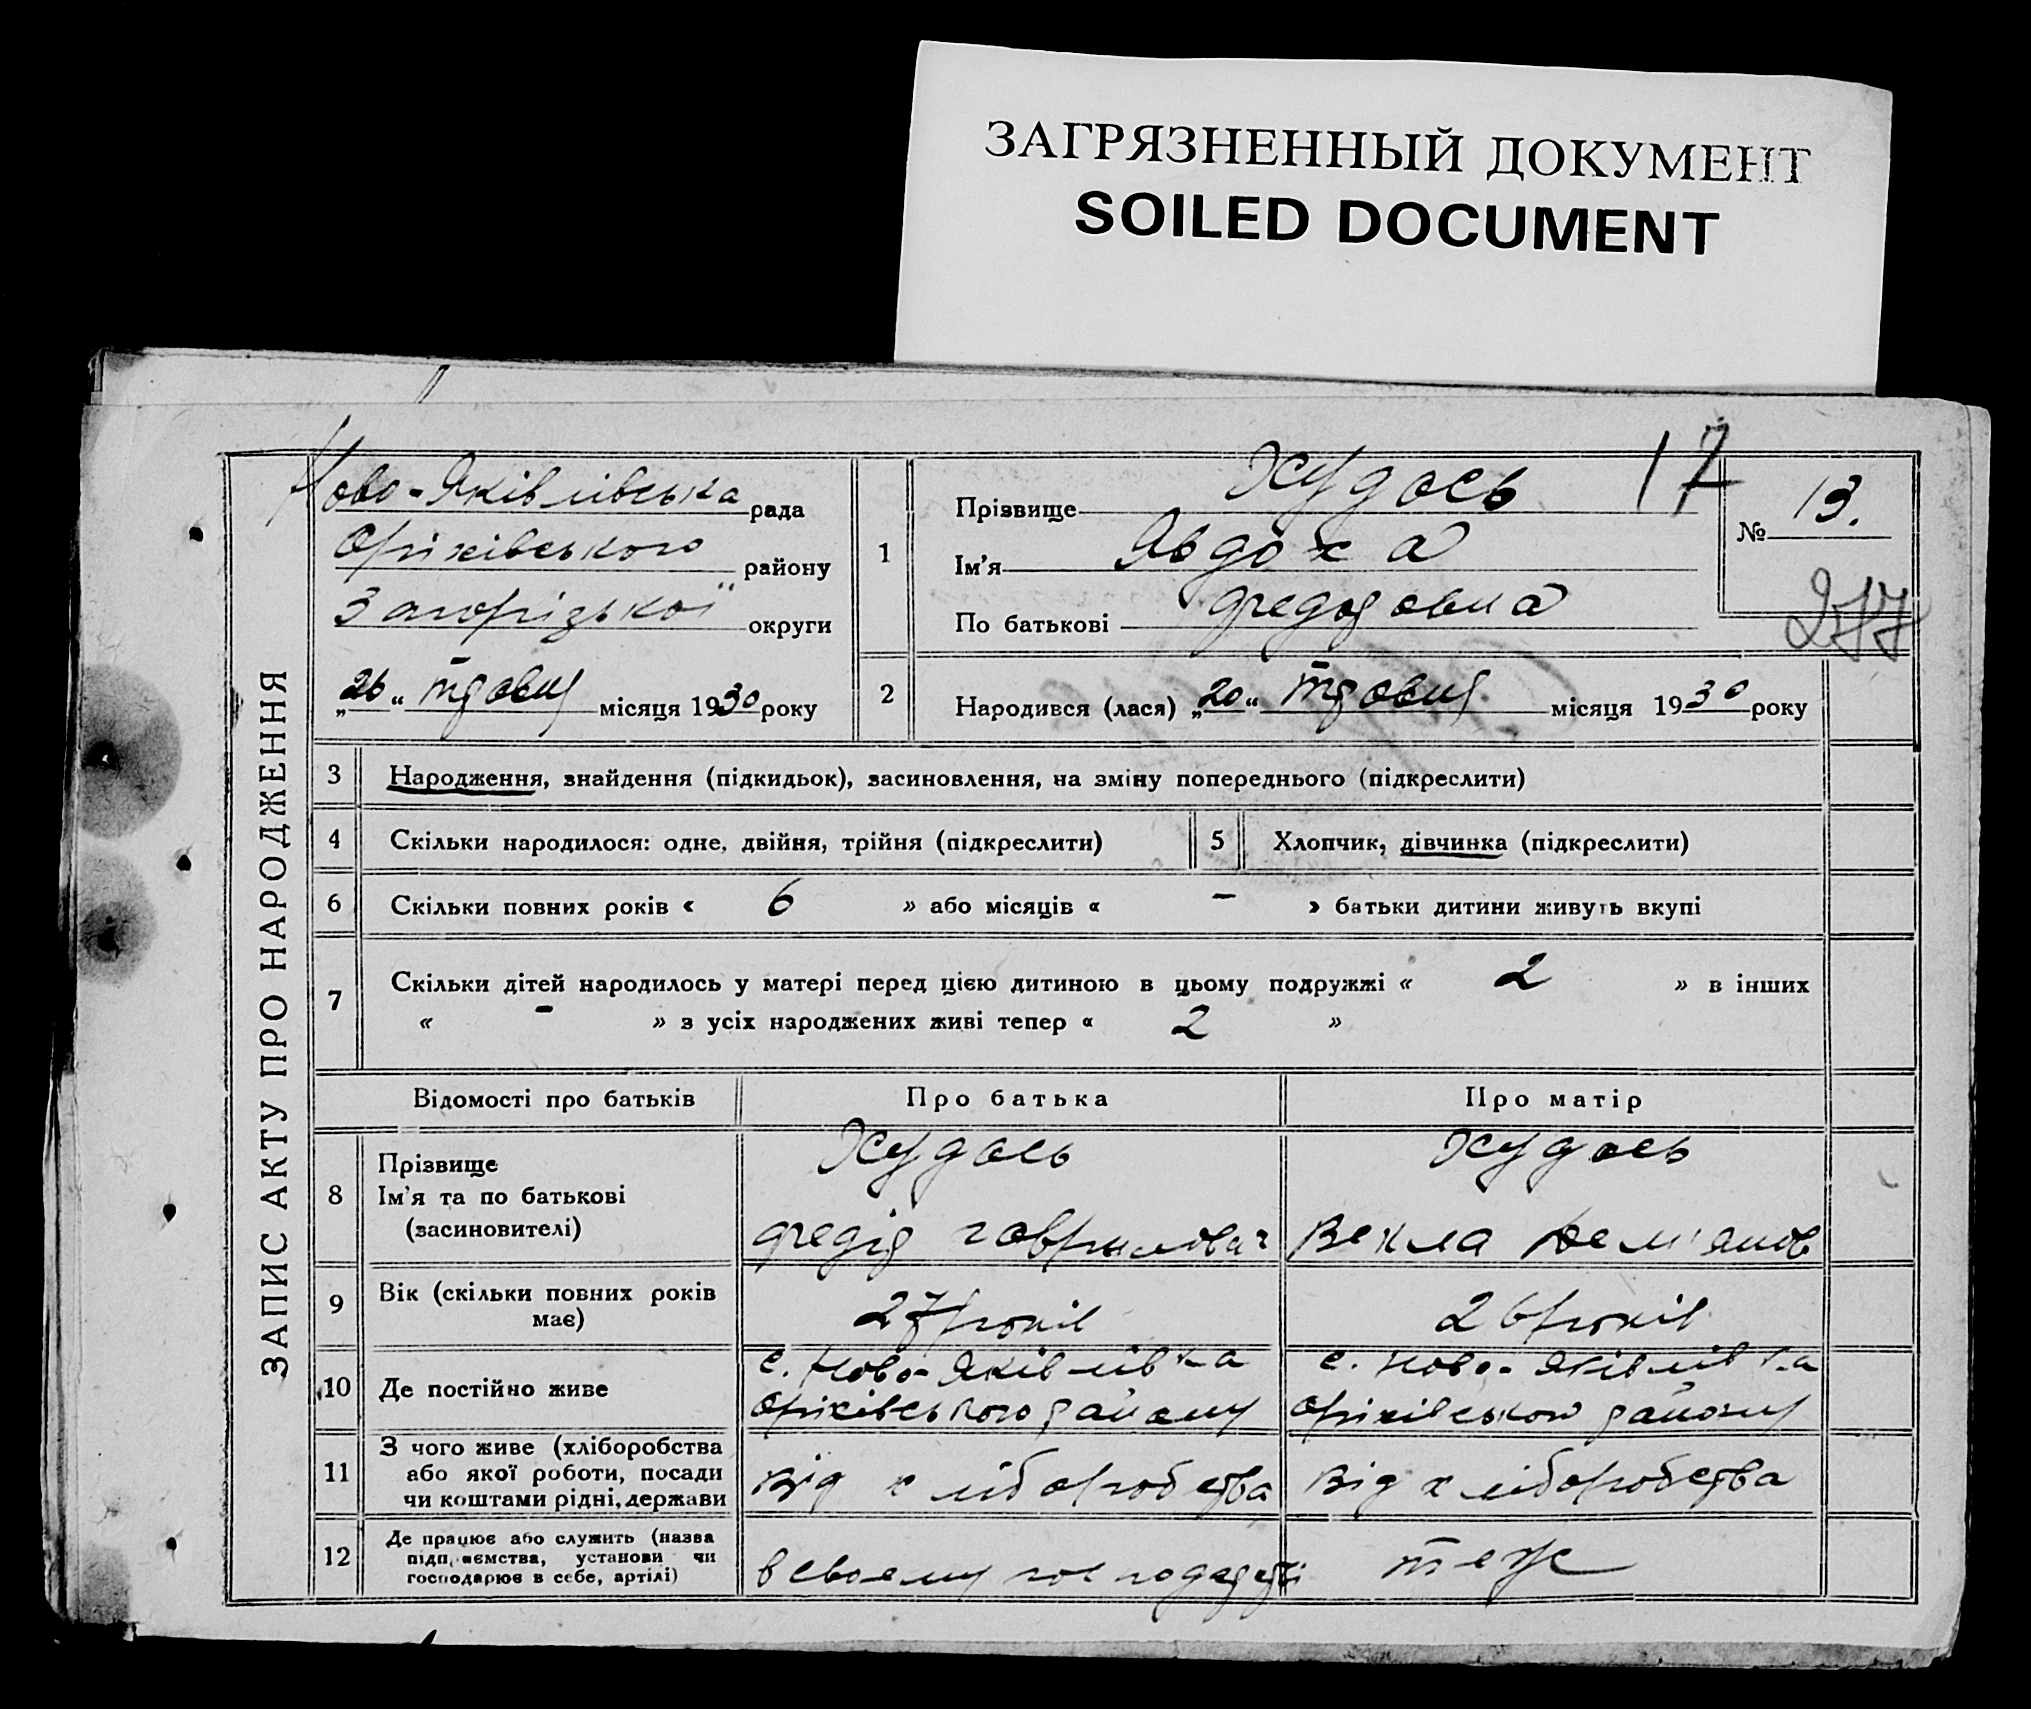 ЗАГРЯЗНЕННЫЙ ДОКУМЕНТ
SOILED DOCUMENT
ЗАПИС АКТУ ПРО НАРОДЖЕННЯ
Ново-Яківлівська рада
Оріхівського району
Запорізької округи
„26“ місяця 1930 року
17
1 Прізвище Худась
Ім'я Явдоха
По батькові Федодовна
№ 13.
277
2 Народився (лася) „20“ місяця 1930 року
3 Народження, знайдення (підкидьок), засиновлення, на зміну попереднього (підкреслити)
4 Скільки народилося: одне, двійня, трійня (підкреслити) 5 Хлопчик, дівчинка (підкреслити)
6 Скільки повних років « 6 » або місяців « – » батьки дитини живуть вкупі
7 Скільки дітей народилось у матері перед цією дитиною в цьому подружжі « 2 » в інших
« – » з усіх народжених живі тепер « 2 »
Відомості про батьків Про батька Про матір
8 Прізвище Худась Худась
Ім'я та по батькові
(засиновителі) Федід Гаврилович Векла Демянов
9 Вік (скільки повних років має) 27 років 26 років
10 Де постійно живе с. Ново-Яківлівка Оріхівського району с. Ново-Яківлівка Оріхівського району
11 З чого живе (хліборобства
або якої роботи, посади
чи коштами рідні, держави Від хліборобства Від хліборобства
12 Де працює або служить (назва
підприємства, установи чи
господарює в себе, артілі) в своєму теж